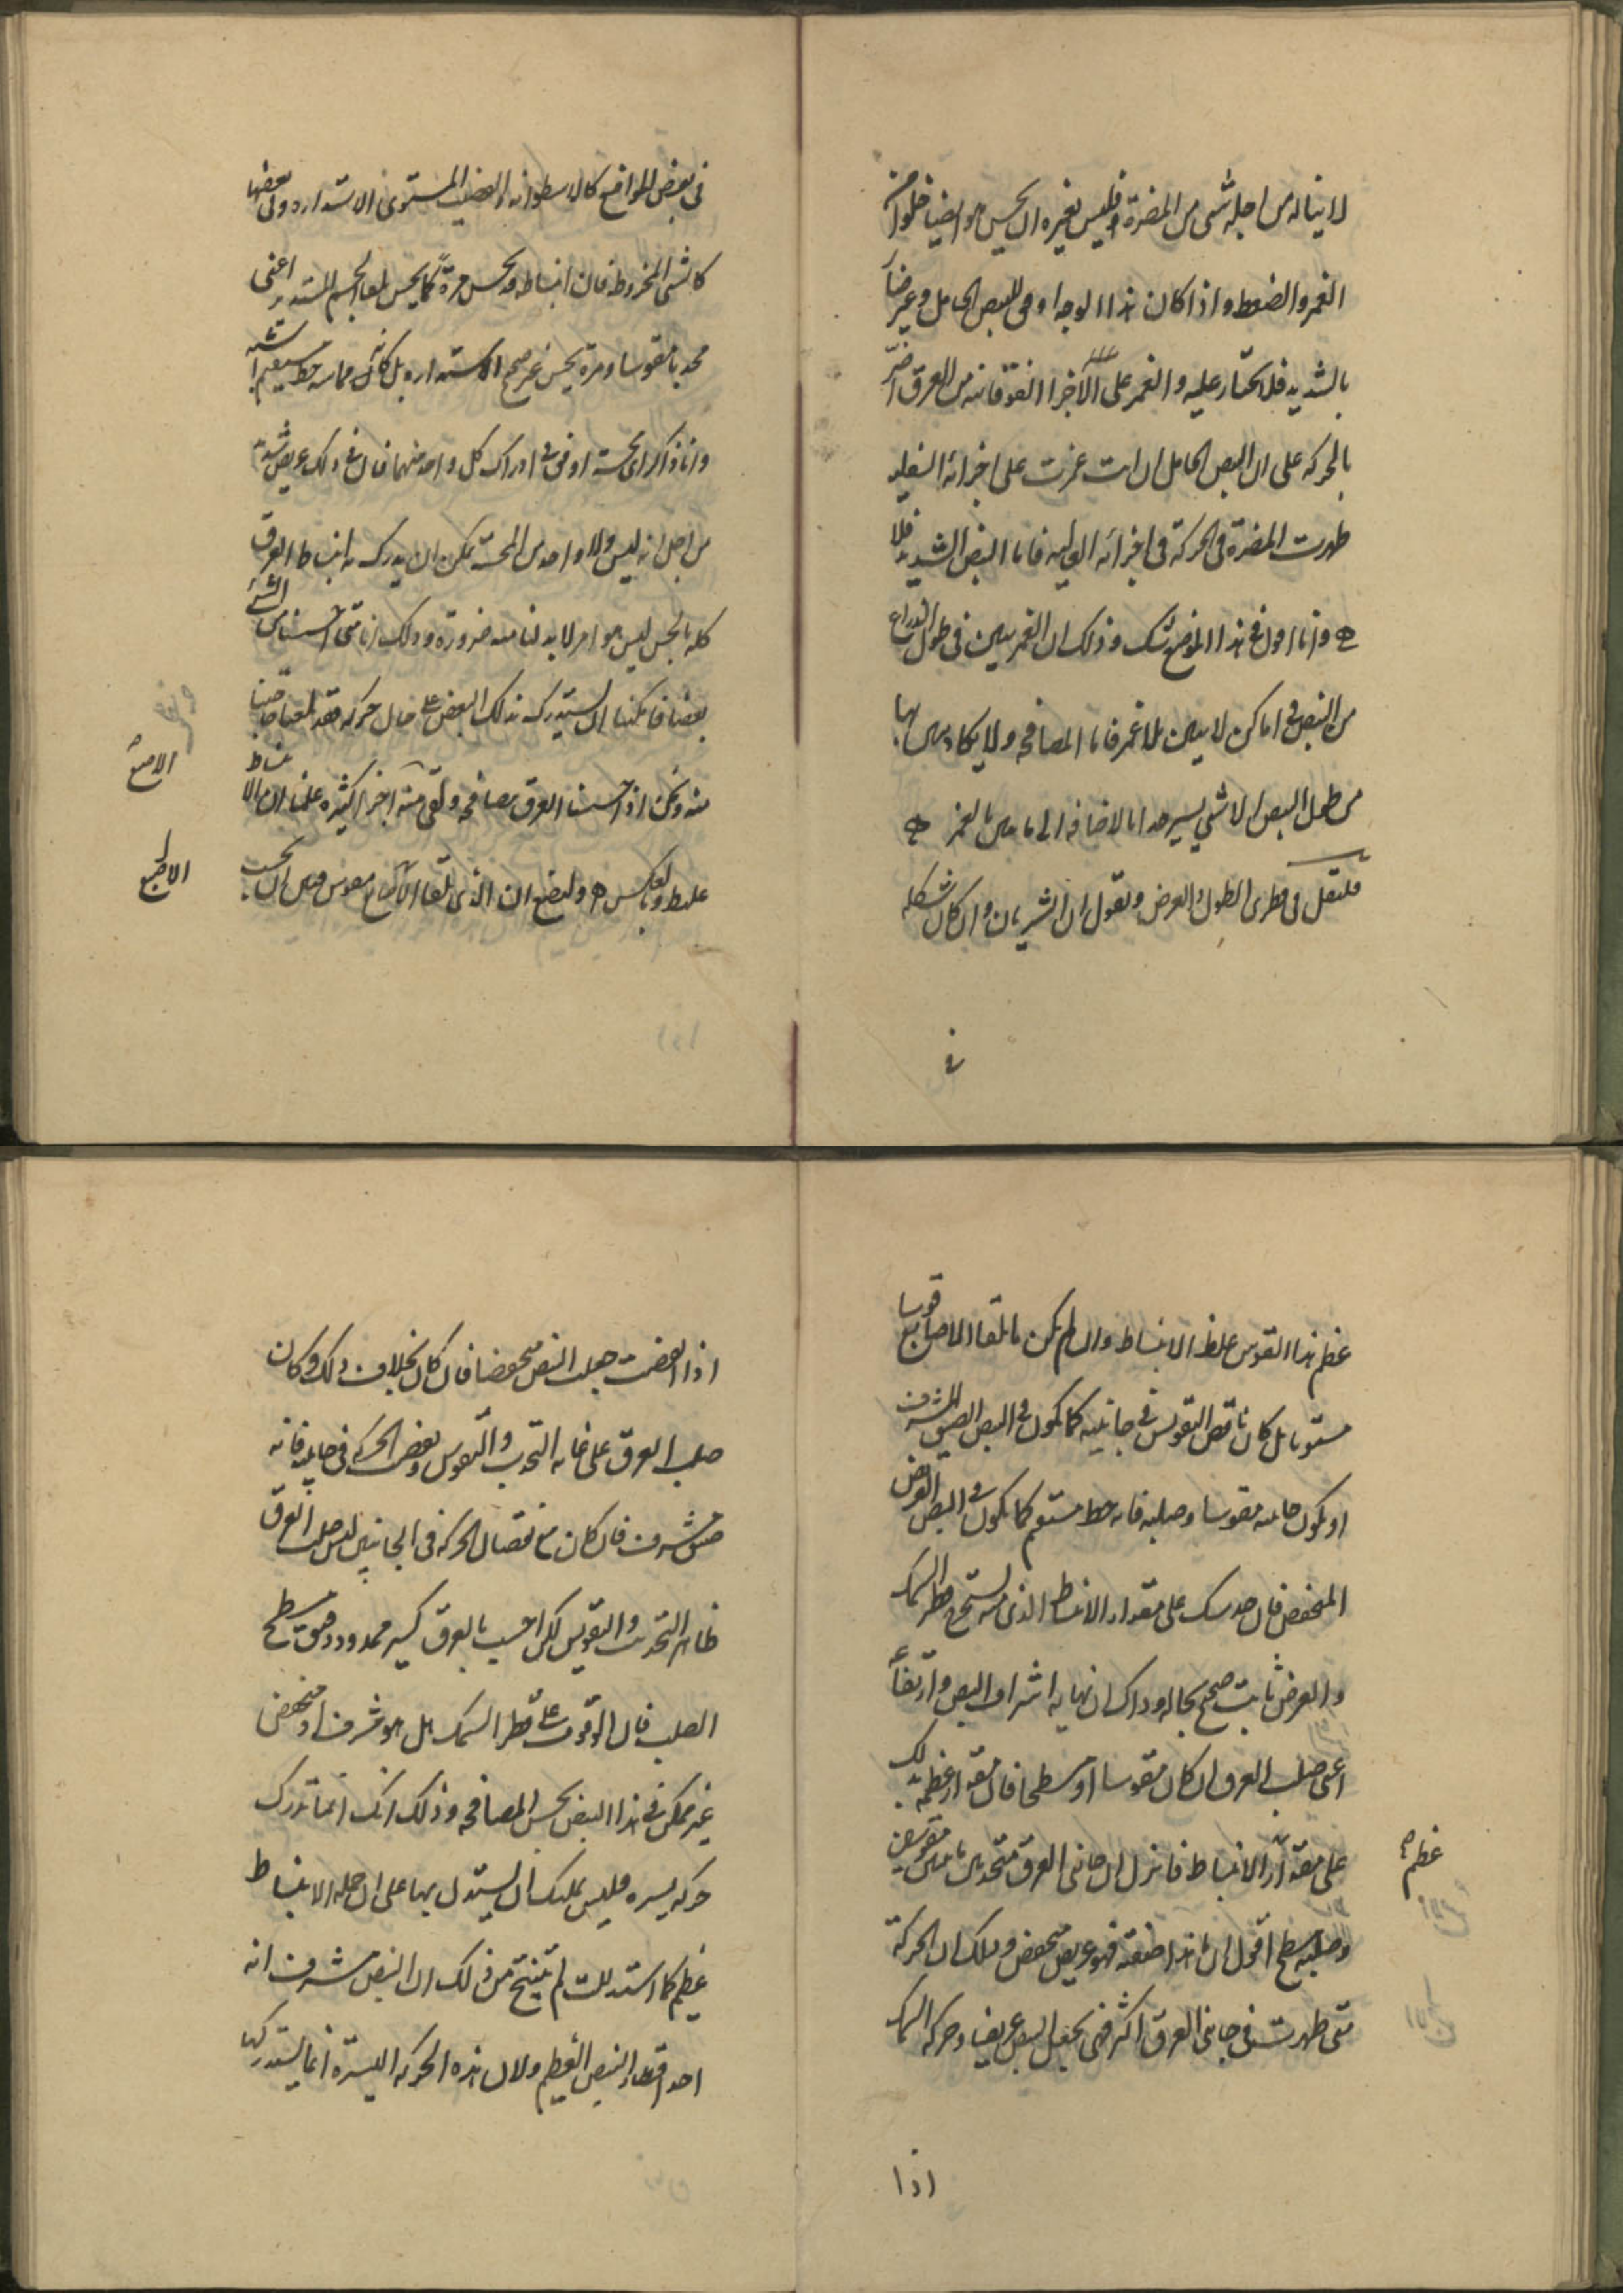 لا يناله من اجله شى من المضرة فليس بغيره ان يحس هو ايضا خلوا من
الغمز والضغط واذا كان هذا الوجه اوفى للنبض الخامل وغير ضار
بالشديد فلتختار عليه والغمز على الاجزا الفوقانيه من العرق اضر
بالحركه على ان النبض الخامل ان انت غمزت على اجزائه السفليه
ظهرت المضرة فى الحركة فى اجزائه العاليه فاما النبض الشديد فلا
وانا اقول فى هذا الموضع شك وذلك ان الغمز يبين فى طول الذراع
من النبض فى اماكن لا يبين بلا غمز فاما المصافحه ولا يكاد يبين بها
من طول النبض الا شي يسير جدا بالاضافه الى ما يبين بالغمز
فلننقل فى قطرى الطول والعرض ونقول ان الشريان وان كان شكله
فى
فى بعض المواضع كالاسطوانه والقضيب المستوى الاستداره وفى بعضها
كالشى المخروط فان انبساطه قد يحس مرةً كما يحس بلقا الجسم المستدير اعنى
محدبا مقوسا ومرة يحس غير صحيح الاستداره بل كأنه مماسه خط مستقيم اشبه
وانا ذاكر اى محسة اوفق فى ادراك كل واحد منهما فان فى ذلك عويص شديد
من اجل انه ليس ولا واحد من المحسة يمكن ان يدرك به انبساط العرق
كله بالحس ليس هو امر لا بد لنا منه ضرورة وذلك انا متى احسسنا من الشئ
بعضا فامكننا ان نستدرك بذلك البعض على حال حركه فقد بلغنا حاجتنا
منه ونحن اذا احسسنا العرق مصافحه ولقى منه اجزا كثيره علمنا ان الانبساط
عليط وبالعكس وليضع ان الذى تلقا الاصابع مقوس فبين ان بحسب
الاصبع
الاصبع
عظم هذا القوس غلظ الانبساط وان لم يكن ما تلقا الاصابع قوسا
مستويا بل كان ناقص التقويس فى جانبيه كما يكون فى النبض الضيق المشرف
او يكون جانبه مقوسا وصلبه فانه خط مستقيم كما يكون فى النبض العريض
المنخفض فان حدسك على مقدار الانبساط الذى منه تستخرج قطر السمك
والعرض ثابت صحيح بحاله وذاك ان نهاية اشراف النبض وارتفاع
اعنى صلب العرق ان كان مقوسا او مسطحا فان مقدار عظمه يدلك
على مقدار الانبساط فانزل ان جانبى العرق متحدبين مقوسين
وصلبه مسطح اقول ان هذا صفته فهو عريض منخفض وذلك ان الحركة
متى ظهرت فى جانبى العرق اكثر فهى تجعل النبض عريضا وحركه السمك
عظم
اذا
اذا انخفضت جعلت النبض منخفضا فان كان بخلاف ذلك وكان
صلب العرق على غايه التحدب والتقوس ونقص الحركه فى جانبيه فانه
ضيق مشرف فان كان مع نقصان الحركه فى الجانبين ليس صلب العرق
ظاهر التحديب والتقويس لكن احسب بالعرق كسير ممدود دقيق مسطح
الصلب فان الوقوف على قطر السمك هل هو مشرف او منخفض
غير ممكن فى هذا النبض بحس المصافحه وذلك انك انما تدرك
حركه يسيره فليس يمكنك ان تستدل بها على ان جمله الانبساط
عظيم كما استدللت لم تنتج من ذلك ان النبض مشرف انه
احد اقطار النبض العظيم ولان هذه الحركه اليسيرة انما تستدركها